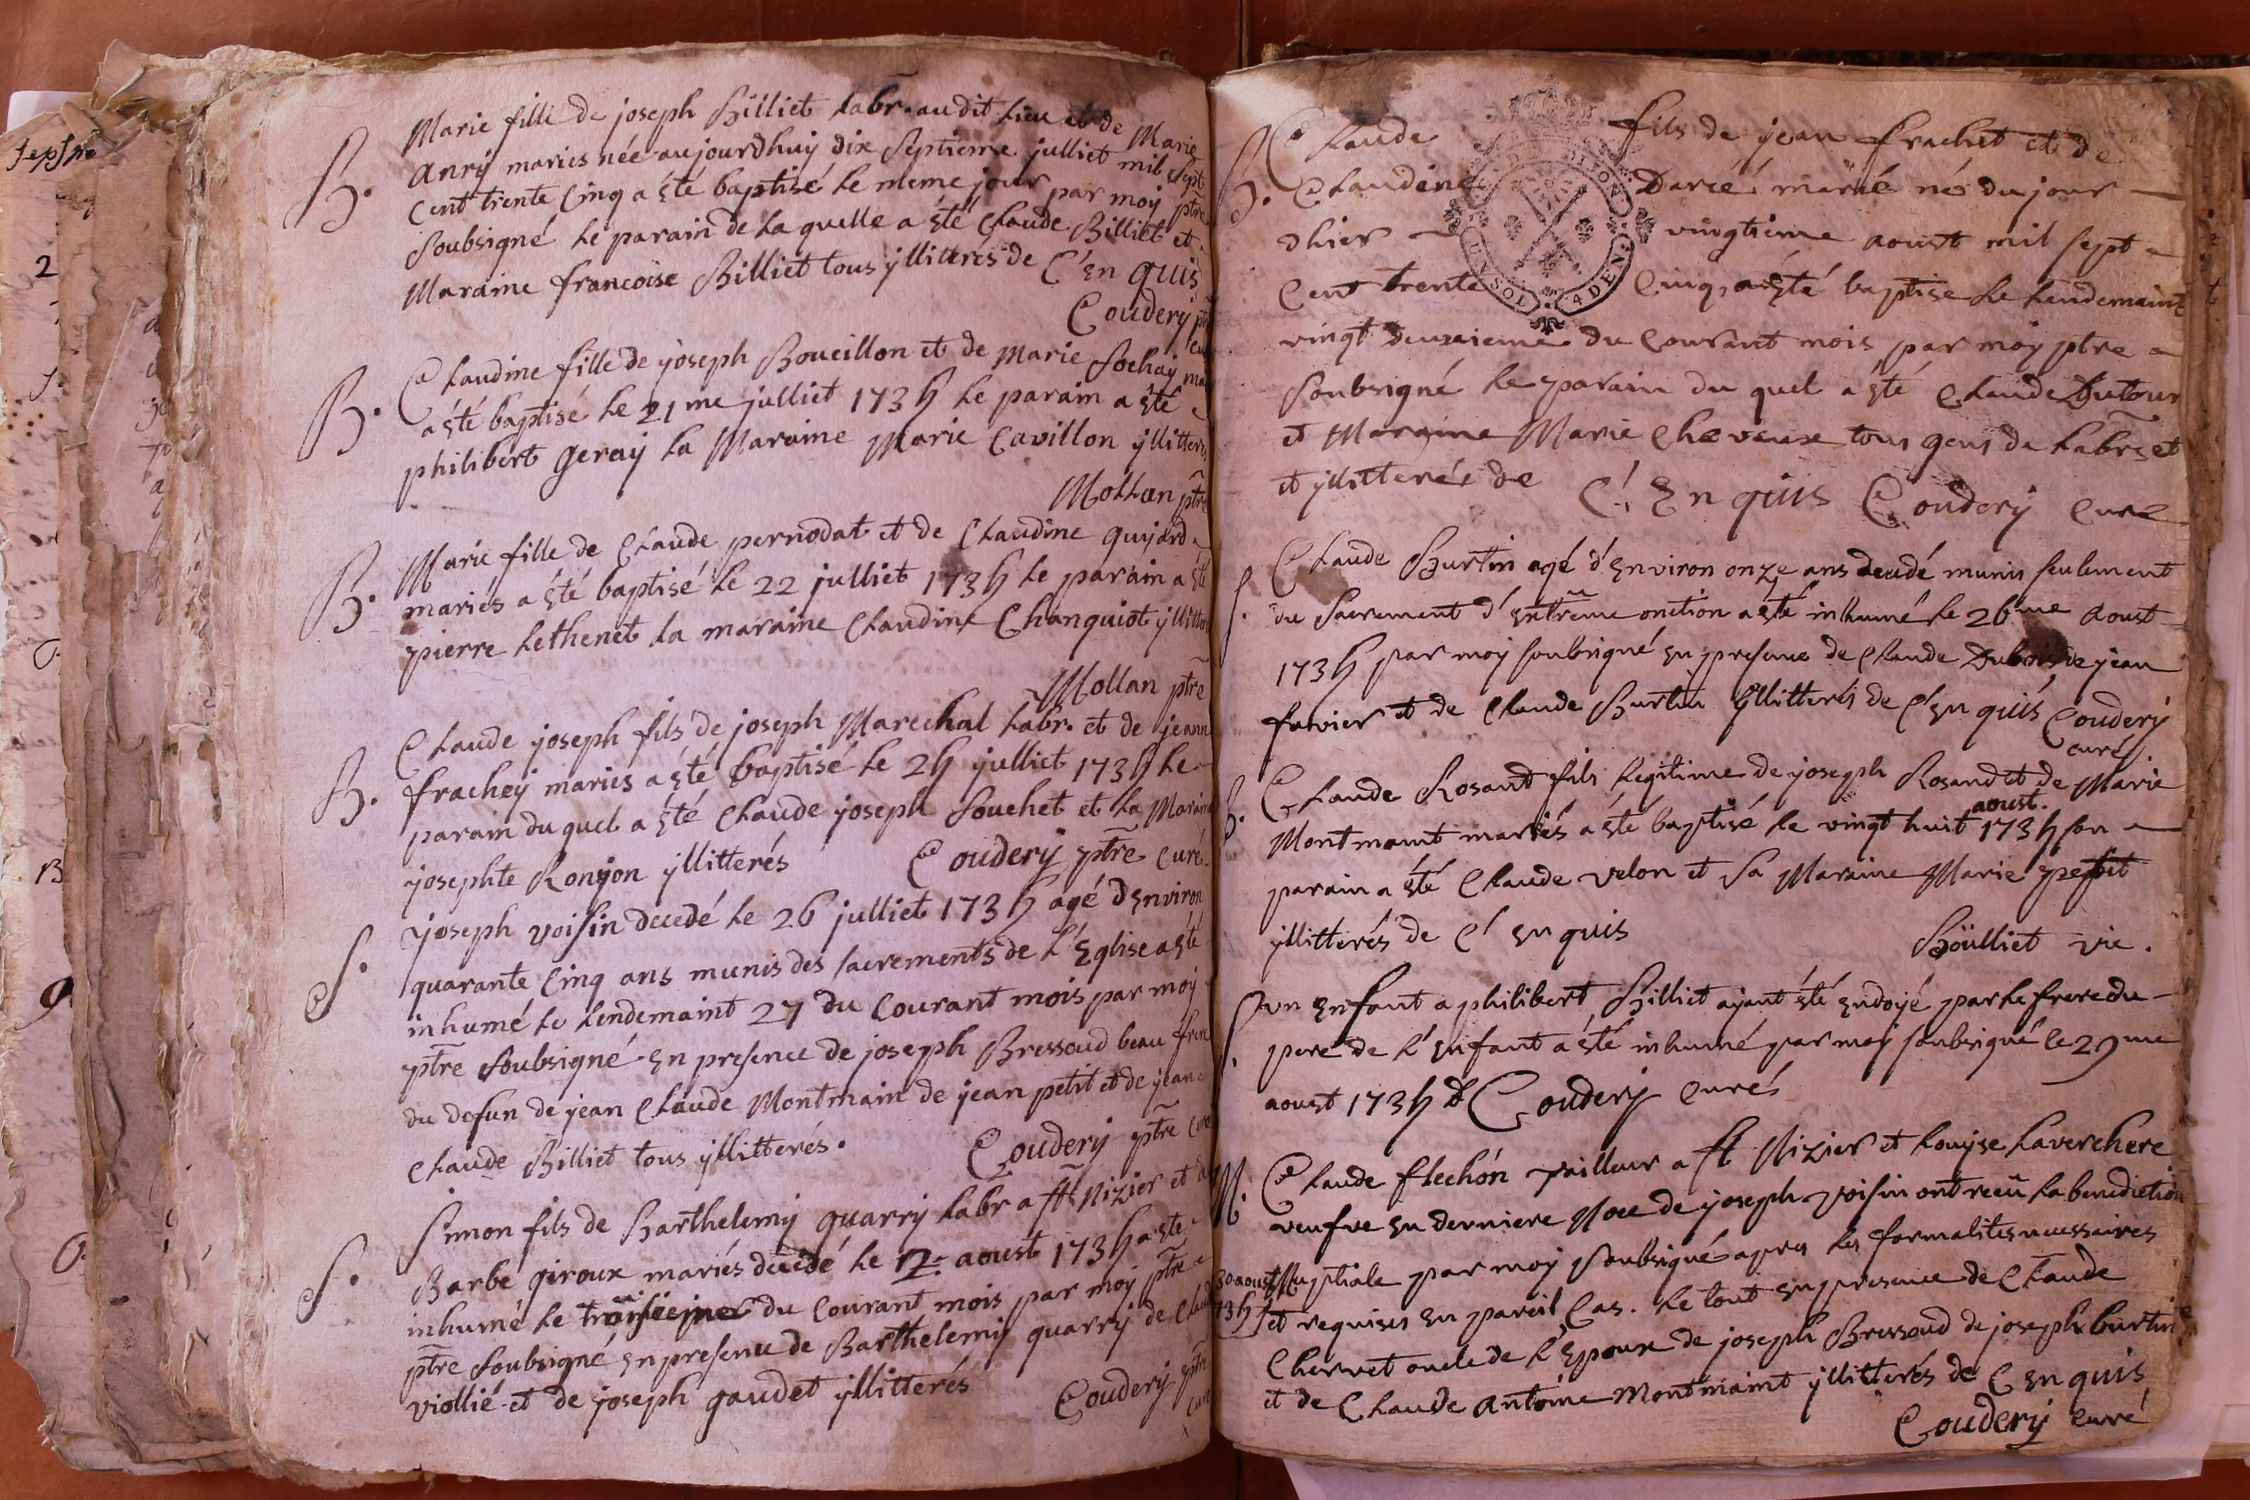 B.
Marie fille de joseph Billiet labr. audit lieu et de Marie
Anry mariés née aujourdhuy dix septieme julliet mil sept
cent trente cinq a été baptisé le meme jour par moy ptre
soubsigné le parain de la quelle a été claude Billiet et
Maraine francoise Billiet tous yllitterés de c'en quis
Coudery ptre
B.
Claudine fille de joseph Boucillon et de Marie Sochay
a été baptisé le 21me julliet 1735 le parain a été
philibert geray la Maraine Marie Cavillon yllitterés
Mollan ptre
B.
Marie fille de Claude pernodat et de Claudine guyard
mariés a été baptisé le 22 julliet 1735 le parain a été
pierre Lethenet la maraine Claudine Chanquiot
Mollan ptre
B.
Claude joseph fils de joseph Marechal labr. et de jeann
frachey mariés a été baptisé le 25 julliet 1735 le
parain du quel a été Claude joseph Souchet et la Marain
josephte Ronjon yllitterés Coudery ptre curé
S.
joseph voisin decedé le 26 julliet 1735 agé d'environ
quarante cinq ans munis des sacrements de l'Eglise a été
inhumé le lendemaint 27 du courant mois par moy
ptre soubsigné en presence de joseph Bressoud beau frere
du defun de jean Claude Montmain de jean petit et de jean
claude Billiet tous yllitterés.
Coudery ptre curé
S.
Simon fils de Barthelemy quarry labr a st Nizier et de
Barbe giroux mariés decedé le 2e aoust 1735 a été
inhumé le troisieme du courant mois par moy ptre
ptre soubsigné en presence de Barthelemy quarry de Claude
viollié et de joseph gaudet yllitterés
Coudery ptre
DIJON
UN SOL 4 DEN
B.
Claude fils de jean frachet et de
Claudine Darcé marié né du jour
dhier vingtieme aoust mil sept
cent trente cinq, a été baptise le lendemaint
vingt deuxieme du courant mois par moy ptre
soubsigné le parain du quel a été Claude Dutour
et Maraine Marie Cheveux tous gens de labr et
et yllitterés de C'En quis Coudery curé
S.
Claude Burtin agé d'environ onze ans decedé munis seulement
du sacrement d'entreme onction a été inhumé le 26me aoust
1735 par moy soubsigné en presence de Claude Dubois de jean
favier et de Claude Burtin yllitterés de C'en quis Coudery
curé
B.
Claude Rosand fils legitime de joseph Rosand et de Marie
Montmaint mariés a été baptisé le vingt huit aoust. 1735 son
parain a été Claude velon et sa Maraine Marie petit
yllitterés de C'en quis Boülliet vic.
S.
un enfant a philibert Billiet ajant été endoyé par le frere du
pere de l'enfant a été inhumé par moy soubsigné le 29me
aoust 1735 Coudery curés
M.
Claude flechón tailleur a st Nizier et Louyse Laverchere
veufve en derniere Noce de joseph voisin ont recü la benediction
30 aoust Nuptiale par moy soubsigné apres les formalites necessaires
et requises en pareil cas. le tout en presence de Claude
Chervet oncle de l'Epoux de joseph Bressoud de joseph burtin
et de Claude antoine Montmaint yllitterés de C'en quis
Coudery curé